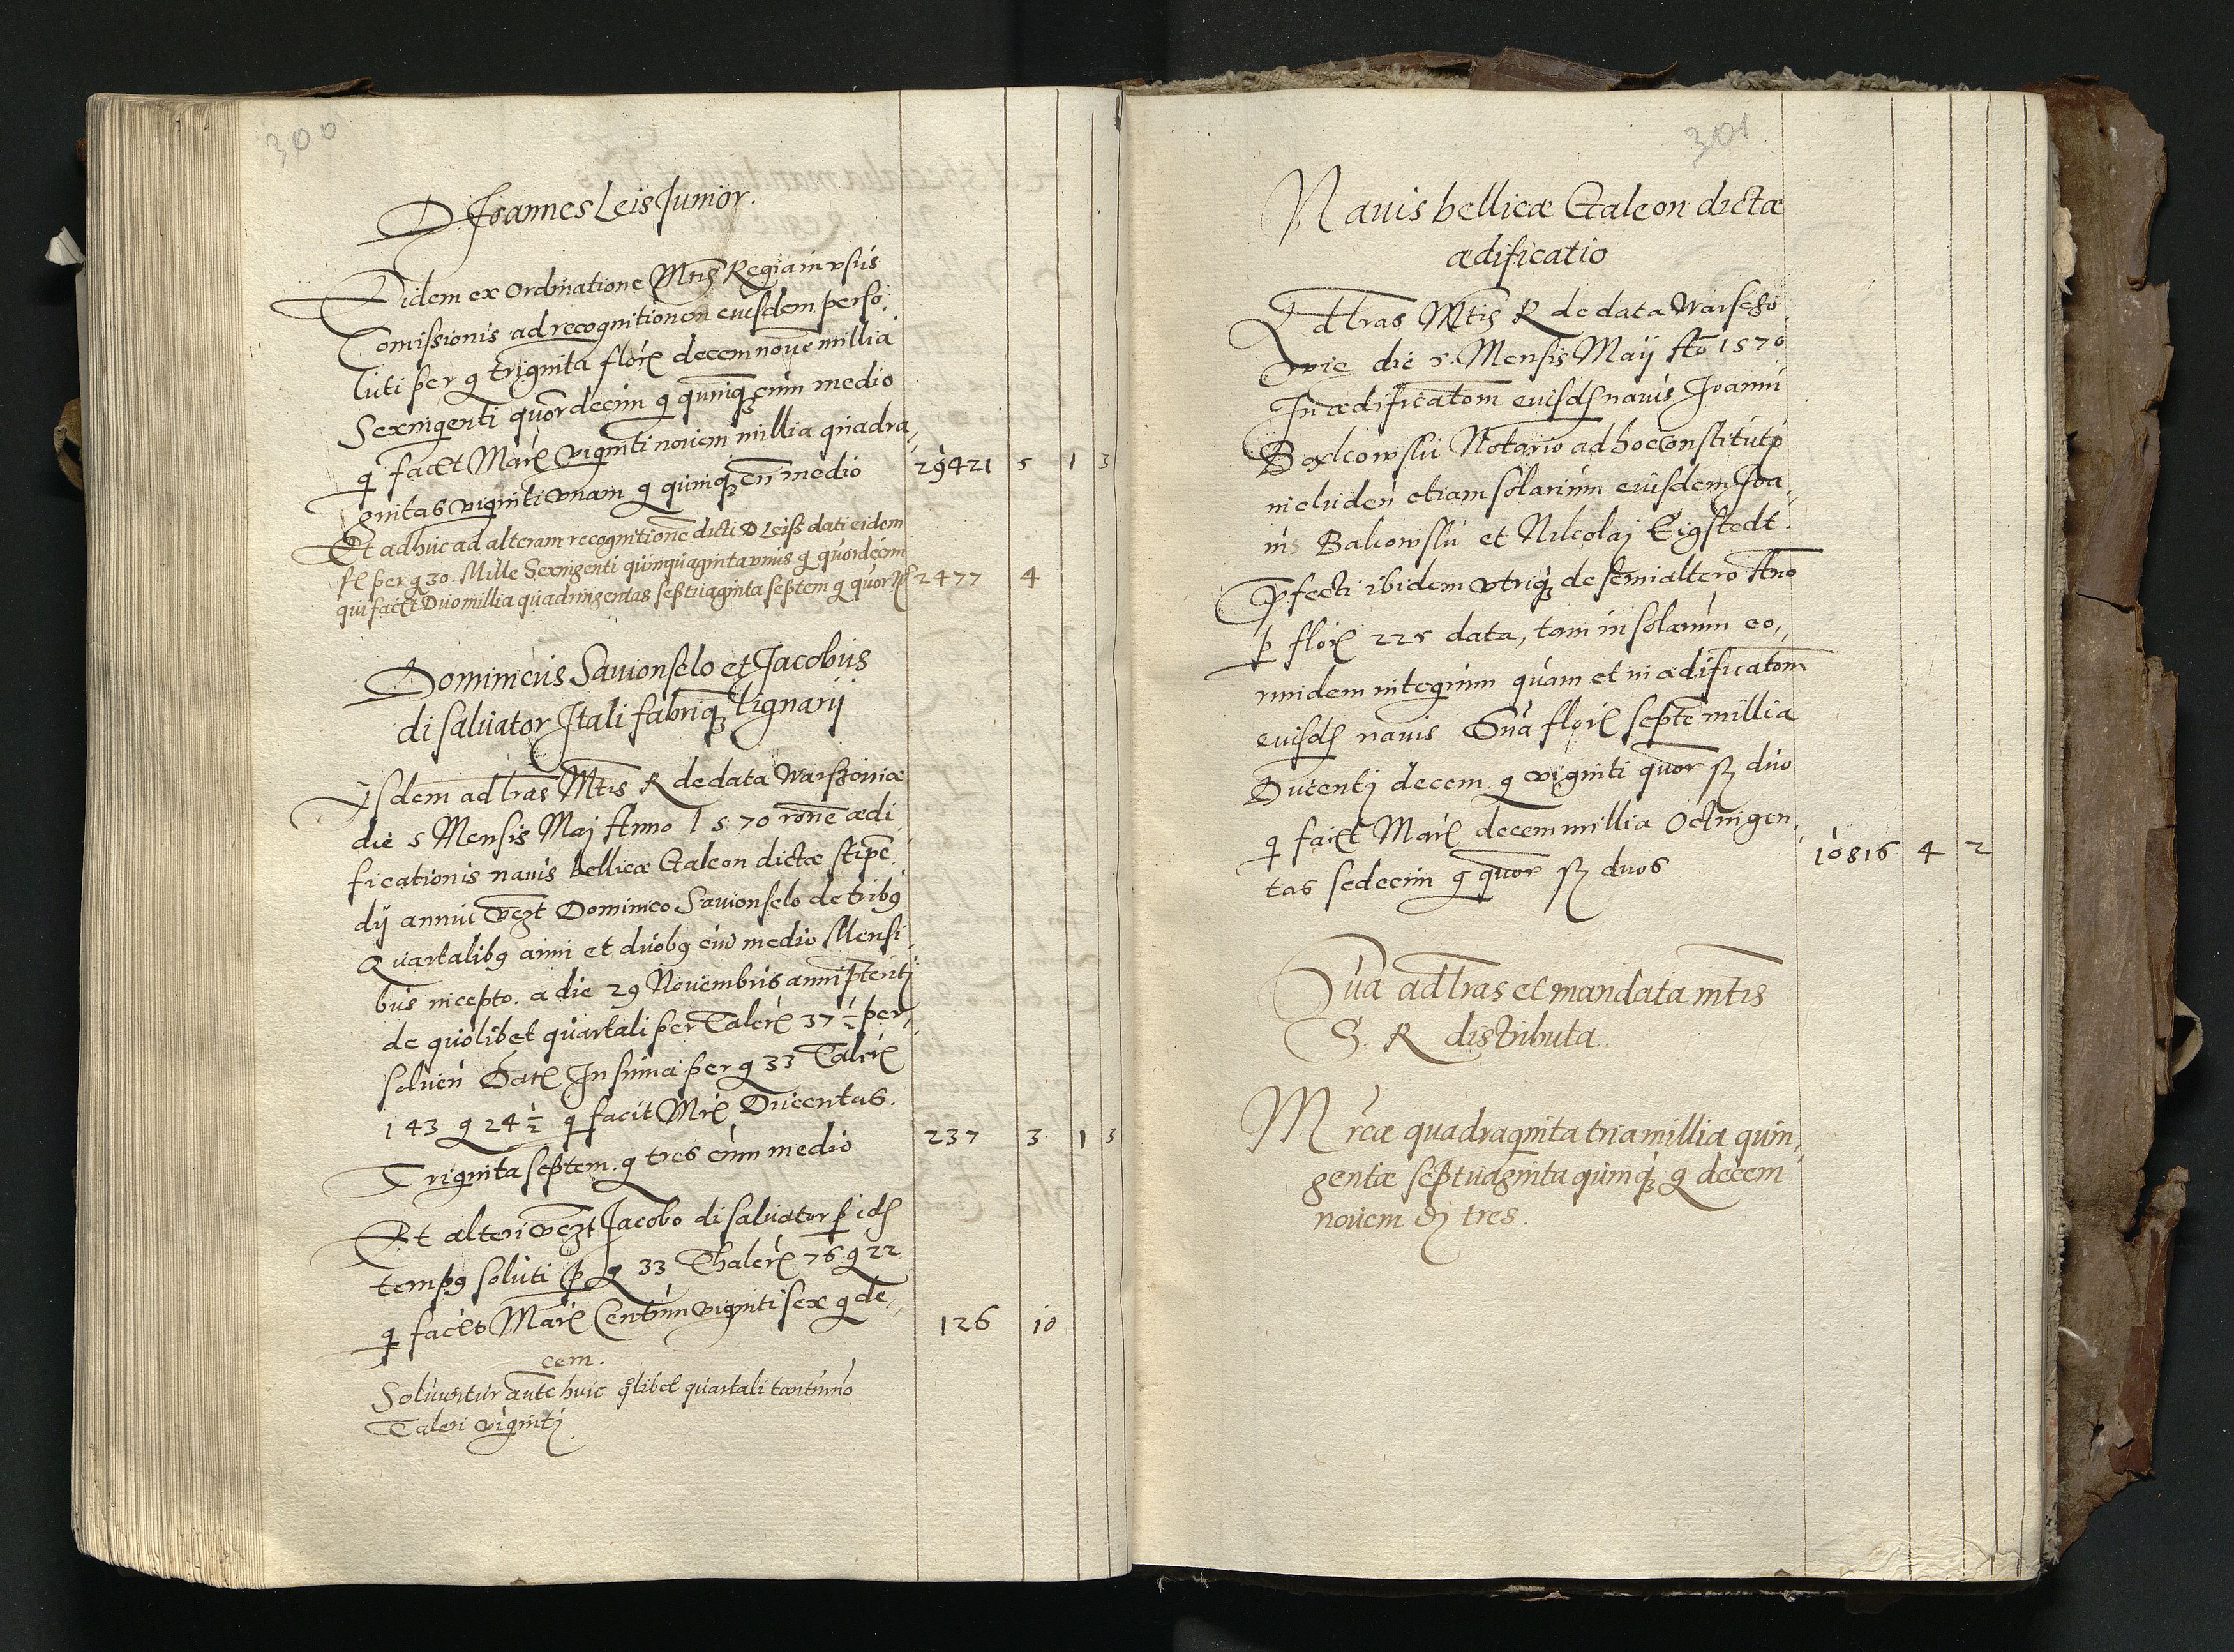 300
D. Joannes Leis Junior.
Eidem ex Ordinatione Mtis Regia in usus
Comissionis ad recognitionem eiusdem perso
luti per g triginta flor decem novē millia
Sexingenti quordecim g quinq cum medio
q facit Marc viginti novem millia quadra,
gintas viginti vnam g quinq cū medio 29421 5 1 3
Et adhuc ad alteram recognitione dicti D Leis dati eidem
fl per g 30. Mille Sexingenti quinquaginta vnus g quordecim
qui facit Duo millia quadringentas septuaginta septem g quor 2477 4
Dominicus Sauionselo et Jacobus
di saluator Itali fabriq lignarij
Isdem ad lras Mtis R de data Warssoviæ
die 5 Mensis Maj Anno 1570 rone ædi
ficationis navis bellicæ Galeon dictæ stipē
dij annui vczt Dominico Sauionselo de trib9
Quartalib9 anni et duob9 cū medio Mensi
bus incepto. a die 29 Novembris anni pteriti
de quolibet quartali per Taler 37½ per,
soluen Dat In suma per g 33 Taler
143 g 24½ q facit Mrc Ducentas.
Triginta septem. g tres cum medio 237 3 1 3
Et alteri vczt Jacobo di saluator p id
temp9 soluti p g 33 Thaler 76 g 22
q facit Marc Centum viginti sex g de,,
cem. 126 10
Soluuntur autē huic qlibet quartali tantūmō
Taleri viginti
301
Navis bellicæ Galeon dictæ
ædificatio
Ad lras Mtis R de data Warscho
vie die 5. Mensis Maij Ao 1570
In ædificatom eiusd navis Joanni
Notario ad hoc constituto
includen etiam solarium eiusdem Joa,
nis Balcowski et Nicolaj Eigstedt.
Pfecti ibidem vtriq de semialtero Ano
p flor 225 data, tam in solarium eo,,
rundem integrum quam et in ædificatom
eiusd navis Sūa flor septē millia
Ducenti decem. g viginti quor duo
q facit Marc decem millia Octingen,
tas sedecim g quor duos 10816 4 2
Sūa ad lras et mandata mtis
S. R distributa.
Mrcæ quadraginta tria millia quin,,
gentæ septuaginta quinq g decem
novem tres.